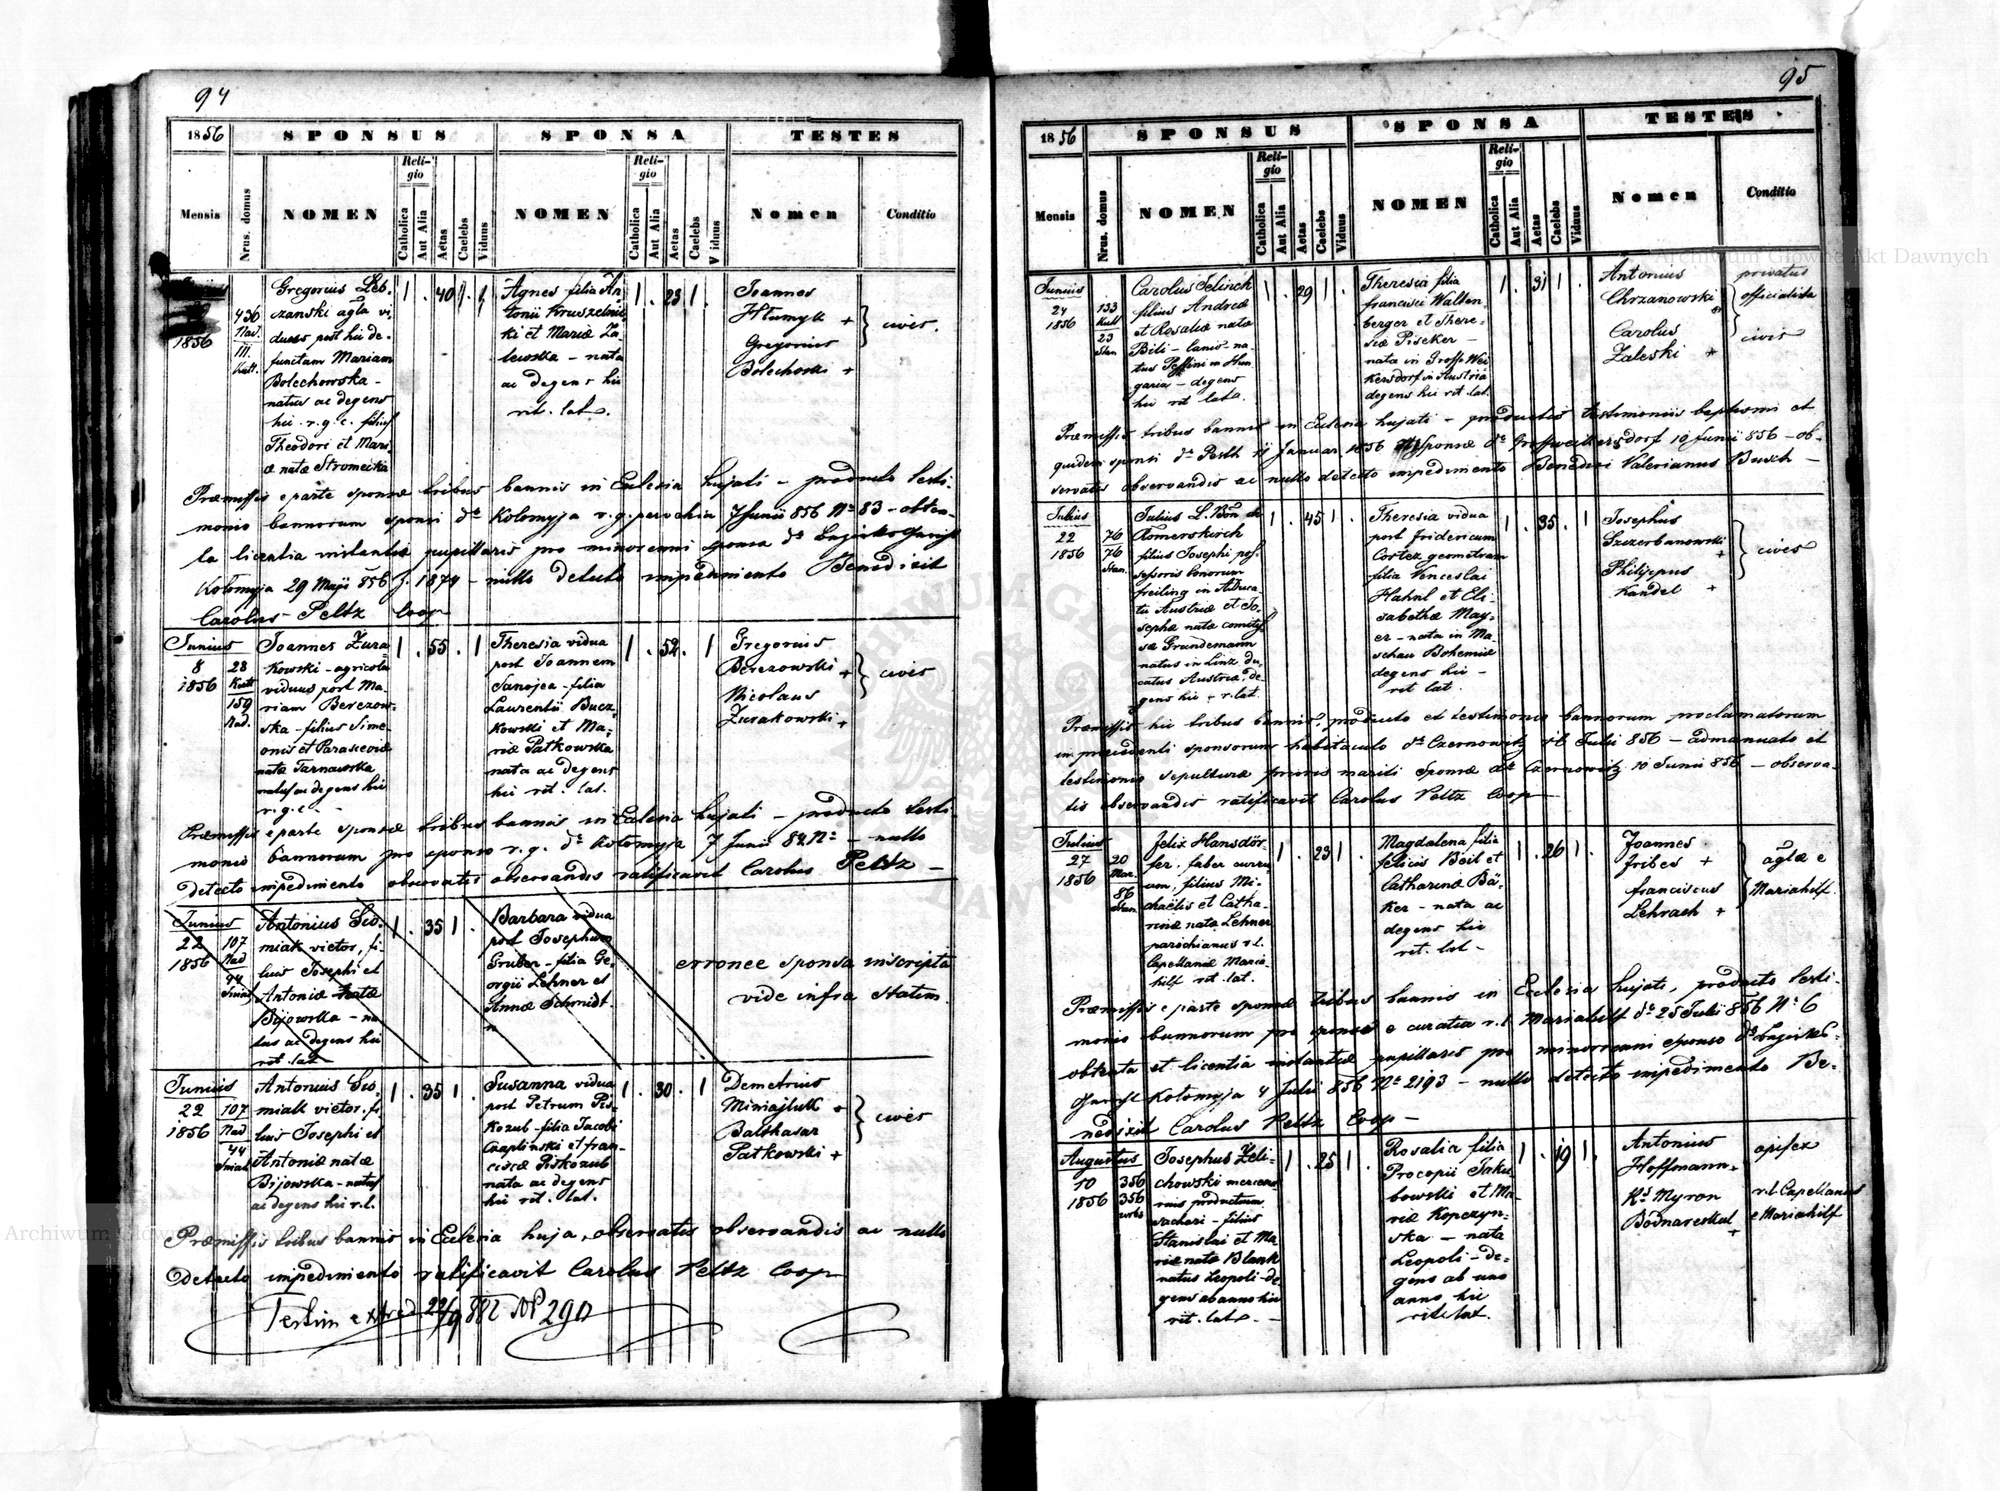 94
1856
SPONSUS
SPONSA
TESTES
Mensis
Nrus. domus
NOMEN
Religio
Catholica
Aut Alia
Aetas
Caelebs
Viduus
NOMEN
Religio
Catholica
Aut Alia
Aetas
Caelebs
Viduus
Nomen
Conditio
1856
436
Nad.
III.
Kutt.
Gregorius Leb-
czanski agla vi-
duus post hic de-
functam Mariam
Bolechowska -
natus ac degens
hic. r. g. c. filius
Theodori et Mari-
æ natæ Stromecka
1 . 40 1 . 1
Agnes filia An-
tonii Kruszelnic-
ki et Mariæ Za-
lewska - nata
ac degens hic
rit. lat.
1 . 23 1 .
Joannes
Htumyk +
Gregorius
Bolechoski +
cives.
Præmissis e parte sponsæ tribus bannis in Ecclesia hujati - producto testi-
monio bannorum sponsi dto Kolomyja r. g. parochia 7 Junii 856 No 83 - obten-
ta licentia instantiæ pupillaris pro minorenni sponsa dto
Kolomyja 29 Maji 856 J. 1874 - nullo detecto impedimento Benedixit
Carolus Peltz Coop
Junius
8
1856
28
Kutt
159
Nad.
Joannes Zura-
kowski - agricola
viduus post Ma-
riam Berezow-
ska - filius Sime-
onis et Parasceviæ
natæ Tarnawska
natus ac degens hic
r. g. c. -
1 . 55 . 1
Theresia vidua
post Joannem
Sanojca - filia
Laurentii Bucz-
kowski et Ma-
riæ Patkowska
nata ac degens
hic rit. lat.
1 . 52 . 1
Gregorius
Berezowski +
Nicolaus
Zurakowski +
cives
Præmissis e parte sponsæ tribus bannis in Ecclesia hujati - producto testi-
monio bannorum pro sponso r. g. dto Kolomyja 7 Junii 84 No - nullo
detecto impedimento observatis observandis ratificavit Carolus Peltz -
Junius
22
1856
107
Nad
44
Antonius Sio-
miak vietor, fi-
lius Josephi et
Antoniæ natæ
Bijowska - na-
tus ac degens hic
rit. lat
1 . 35 1 .
Barbara vidua
post Josephum
Gruber - filia Ge-
orgii Lehner et
Annæ Schmidt
erronee sponsa inscripta
vide infra statim
Junius
22
1856
107
Nad
44
Antonius Sio-
miak vietor. fi-
lius Josephi et
Antoniæ natæ
Bijowska - natus
ac degens hic r. l.
1 . 35 1 .
Susanna vidua
post Petrum Pis-
kozub - filia Jacobi
Czaplinski et fran-
ciscæ Piskozub
nata ac degens
hic rit. lat.
1 . 30 . 1
Demetrius
Minajluk +
Balthasar
Patkowski +
cives
Præmissis tribus bannis in Ecclesia huja, observatis observandis ac nullo
detecto impedimento ratificavit Carolus Peltz Coop
Testim extrad 22/9 882 No 290
95
1856
SPONSUS
SPONSA
TESTES
Mensis
Nrus. domus
NOMEN
Religio
Catholica
Aut Alia
Aetas
Caelebs
Viduus
NOMEN
Religio
Catholica
Aut Alia
Aetas
Caelebs
Viduus
Nomen
Conditio
Junius
24
1856
133
Kutt
23
Stan.
Carolus Jelinek
filius Andreæ
et Rosaliæ natæ
Bili - lanio na-
tus in Hun-
garia - degens
hic rit lat.
1 . 29 1 .
Theresia filia
francisci Walten-
berger et There-
siæ Piseker -
nata in Gross Wei-
kersdorf in Austria
degens hic rit lat.
1 . 31 1 .
Antonius
Chrzanowski
Carolus
Zaleski +
privatus
officialista
civis
Præmissis tribus bannis in Ecclesia hujati - productis testimoniis baptismi et
quidem sponsi dto Pesth 11 Januar. 1856 Sponsæ dto Grossweikersdorf 10 Junii 856 - ob-
servatis observandis ac nullo detecto impedimento Benedixi Valerianus Busch -
Julius
22
1856
76
76
Stan.
Julius L. Bon de
Romerskirch
filius Josephi pos-
sessoris bonorum
freiling in
Austriæ et Jo-
sephæ natæ comitis-
sæ Grundemann
natus in Linz du-
catus Austriæ de-
gens hic - r. lat.
1 . 45 1 .
Theresia vidua
post fridericum
Cortez geometram
filia Venceslai
Hahnl et Eli-
sabethæ May-
er - nata in Ma-
schau Bohemiæ
degens hic -
rit lat -
1 . 35 . 1
Josephus
Szczerbanowski +
Philippus
Kandel +
cives
Præmissis hic tribus bannis, producto et testimonio bannorum proclamatorum
in præcedenti sponsorum habitaculo dto Czernowitz Julii 856 - admanuato et
testimonio sepulturæ prioris mariti Sponsæ dto Czernowitz 10 Junii 856 - observa-
tis observandis ratificavit Carolus Peltz Coop
Julius
27
1856
20
Mar.
86
Stan.
Felix Hansdör-
fer. faber curru-
um, filius Mi-
chaelis et Catha-
rinæ natæ Lehner
parochianus r. l.
Capellaniæ Maria-
hilf rit. lat.
1 . 23 1 .
Magdalena filia
felicis Beil et
Catharinæ Bä-
ker - nata ac
degens hic
rit. lat -
1 . 26 1 .
Joannes
Fribes +
franciscus
Lehrach +
aglæ e
Mariahilf.
Præmissis e parte sponsæ tribus bannis in Ecclesia hujati, producto testi-
monio bannorum pro sponso e curatia r. l. Mariahilf dto 25 Julii 856 No 6
obtenta et licentia instantiæ pupillaris pro minorenni sponso dto
Kolomyja 4 Julii 856 No 2193 - nullo detecto impedimento Be-
nedixit Carolus Peltz Coop -
Augustus
10
1856
356
356
urbs
Josephus Zeli-
chowski mercen-
rius productum
sachari - filius
Stanislai et Ma-
riæ natæ Blank
natus Leopoli - de-
gens ab anno hic
rit. lat. -
1 . 25 1 .
Rosalia filia
Procopii Jaku-
bowski et Ma-
riæ Kopczyn-
ska - nata
Leopoli - de-
gens ab uno
anno hic
rite lat.
1 . 19 1 .
Antonius
Hoffmann +
Myron
Bodnarcskul +
opifex
r. l. Capellanus
e Mariahilf
Archiwum Główne Akt Dawnych
Archiwum Główne Akt Dawnych